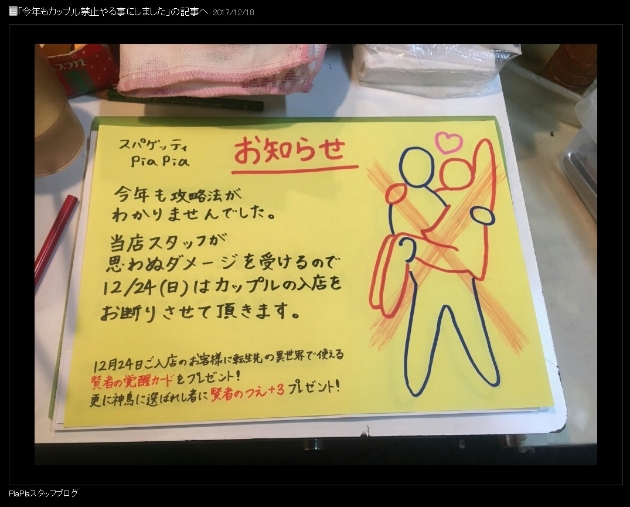 「今年もカップル禁止やる事にしました」の記事へ 2017/12/18
スパゲッティ
PiaPia
お知らせ
今年も攻略法が
わかりませんでした。
当店スタッフが
思わぬダメージを受けるので
12/24(日)はカップルの入店を
お断りさせて頂きます。
12月24日ご入店のお客様に転生先の異世界で使える
賢者の覚醒カードをプレゼント!
更に神鳥に選ばれし者に賢者のつえ+3プレゼント!
PiaPiaスタッフブログ